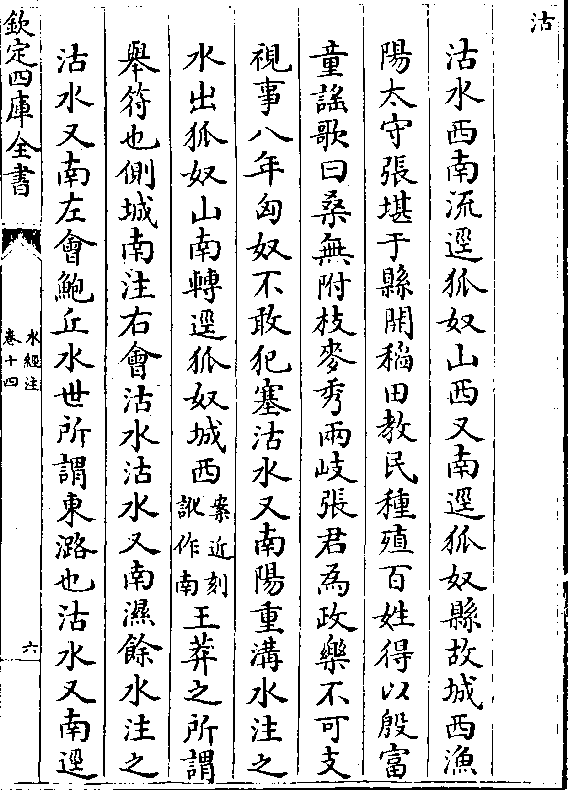 沽
沽水西南流逕狐奴山西又南逕狐奴縣故城西漁
陽太守張堪于縣開稻田教民種殖百姓得以殷富
童謡歌曰桑無附枝麥秀兩岐張君為政樂不可支
視事八年匈奴不敢犯塞沽水又南陽重溝水注之
水出狐奴山南轉逕狐奴城西案近刻訛作南王莽之所謂
舉符也側城南注右會沽水沽水又南濕餘水注之
沽水又南左會鮑丘水世所謂東潞也沽水又南逕
欽定四庫全書
水經注
卷十四
六